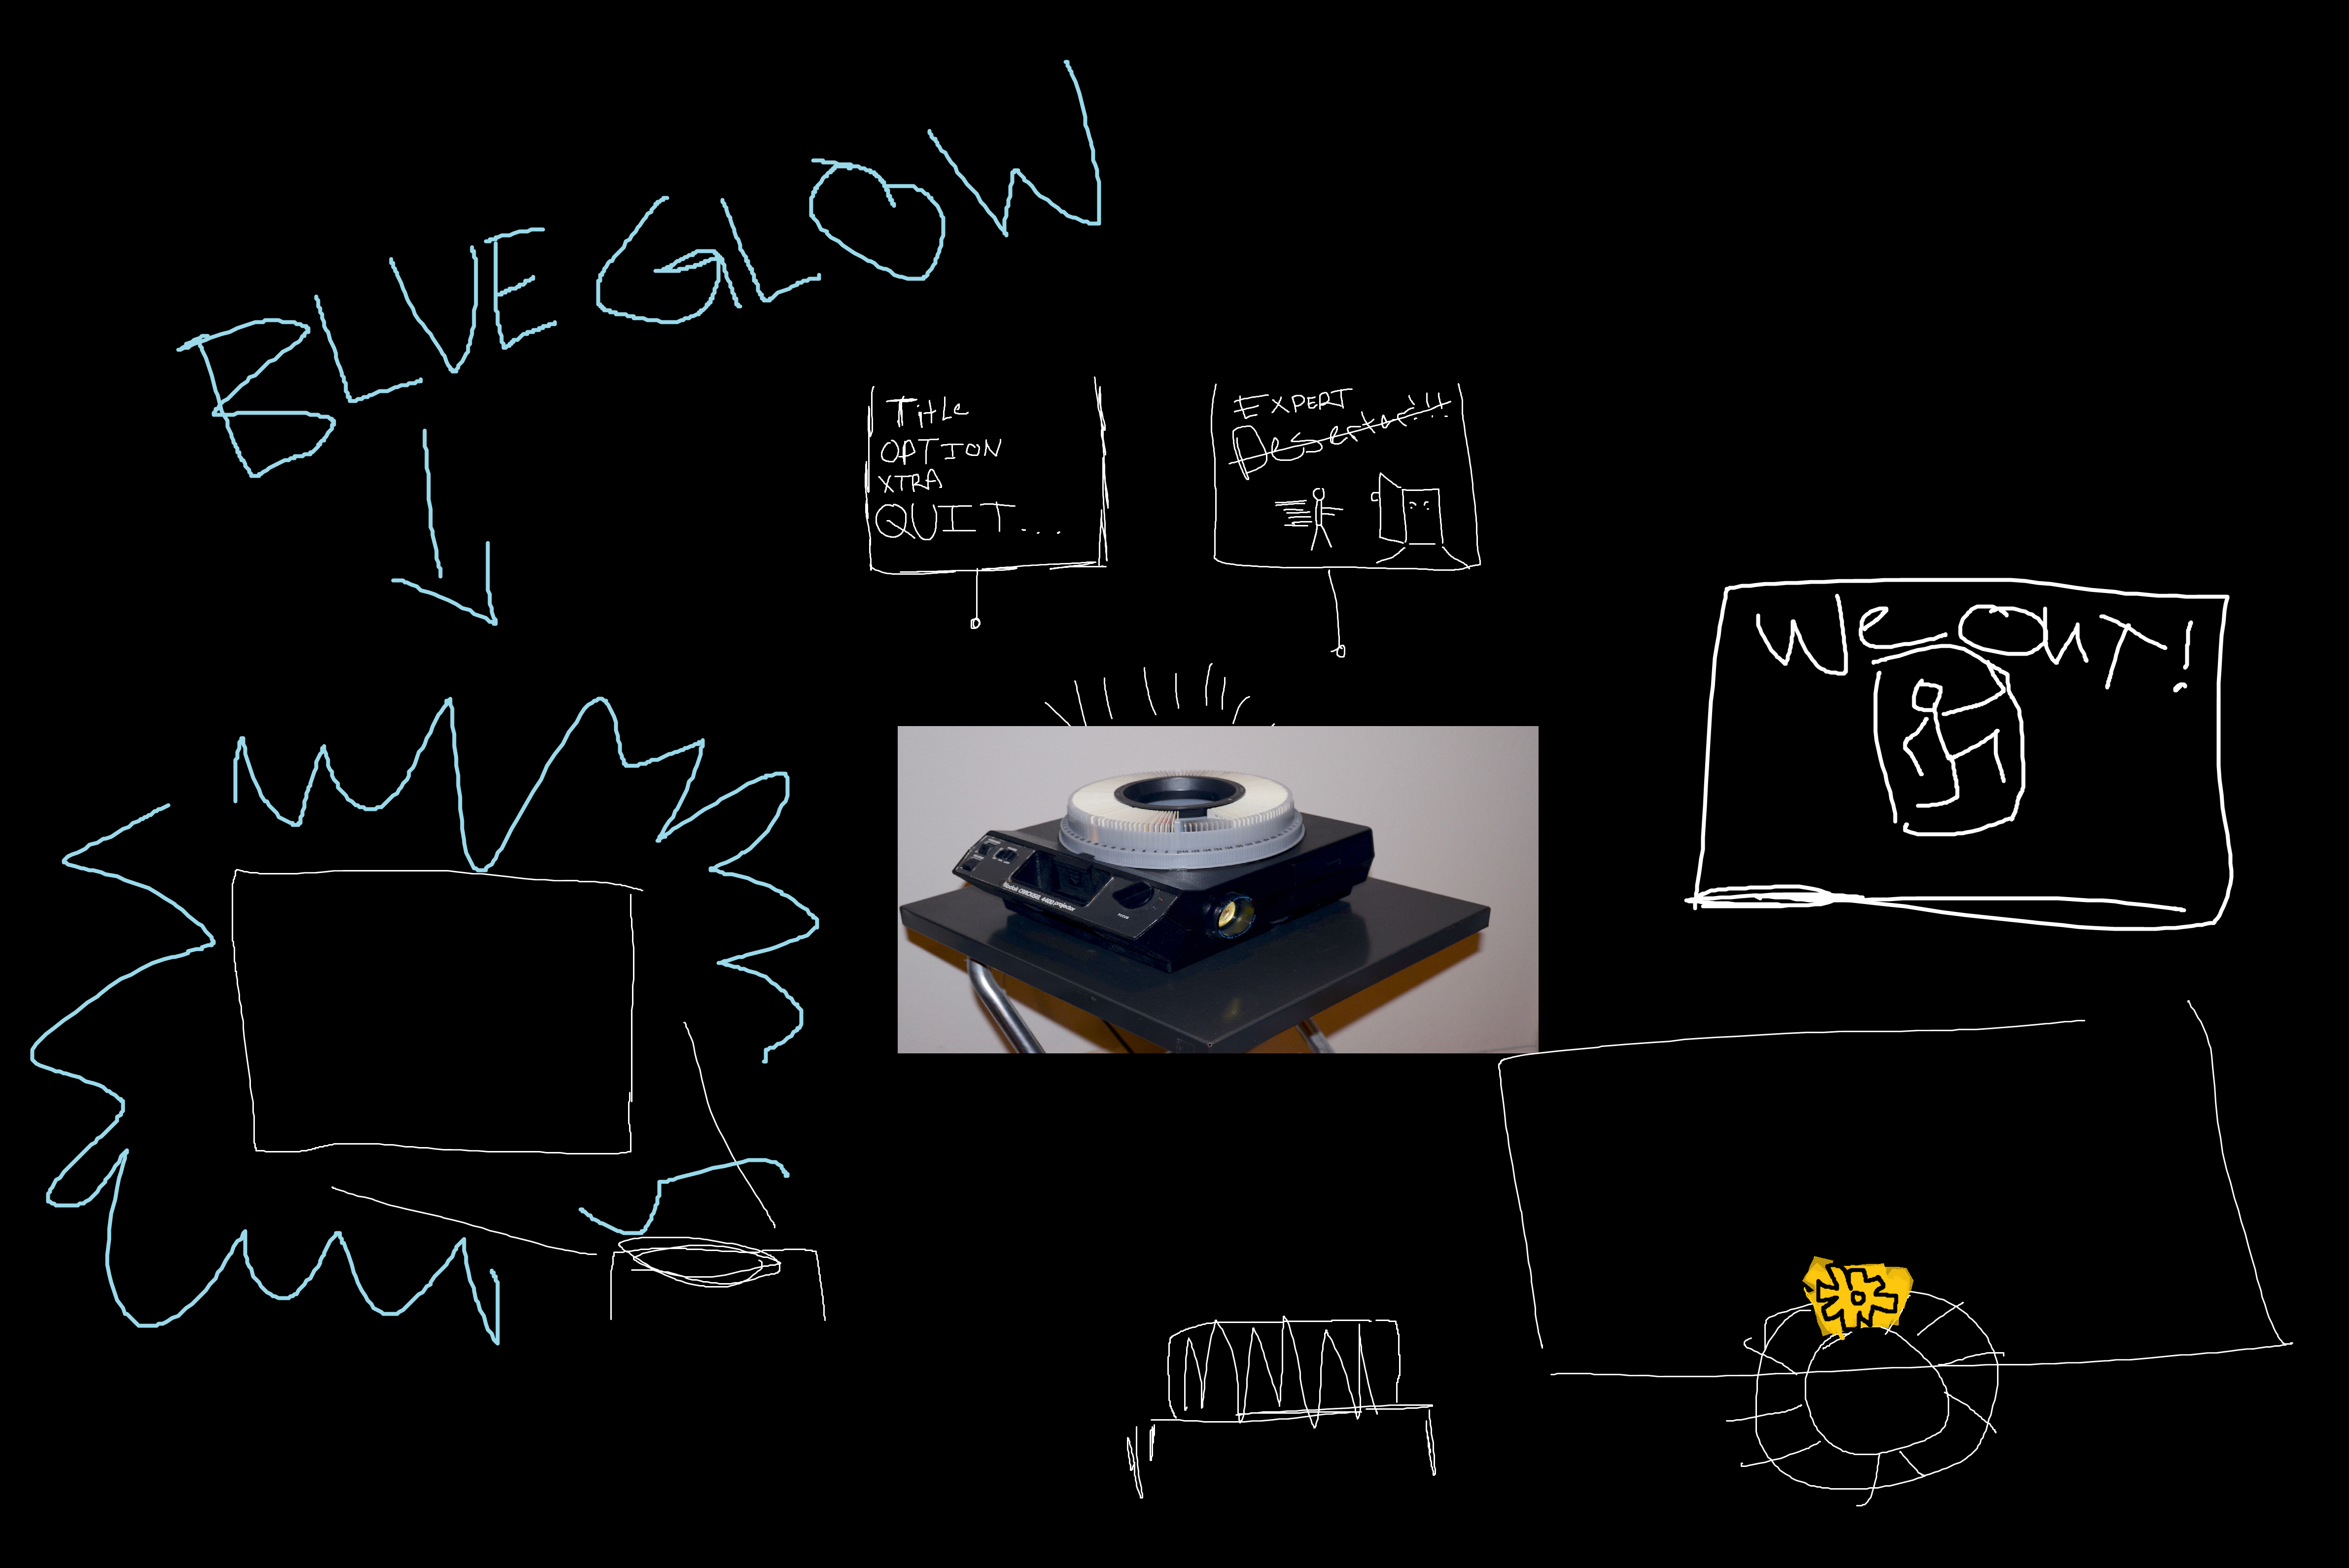 BLUE GLOW
Title
OPTION
XTRA
QUIT...
EXPERT
Deserter!!!
We OUT!
Kodak CAROUSEL 4400 projector
FOCUS